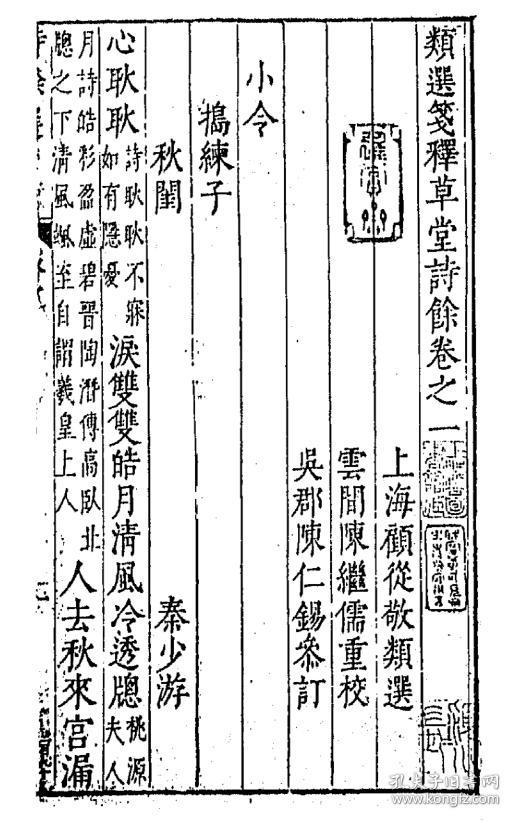 類選箋釋草堂詩餘卷之一
上海顧從敬類選
雲間陳繼儒重校
吳郡陳仁錫參訂
小令
搗練子
秋閨 秦少游
心耿耿詩耿耿不寐如有隱憂淚雙雙皓月清風冷透牕桃源夫人
月詩皓彩盈虛碧晉陶潛傳高臥北牕之下清風颯至自謂羲皇上人人去秋來宮漏
孔夫子旧书网
www.kongfz.com